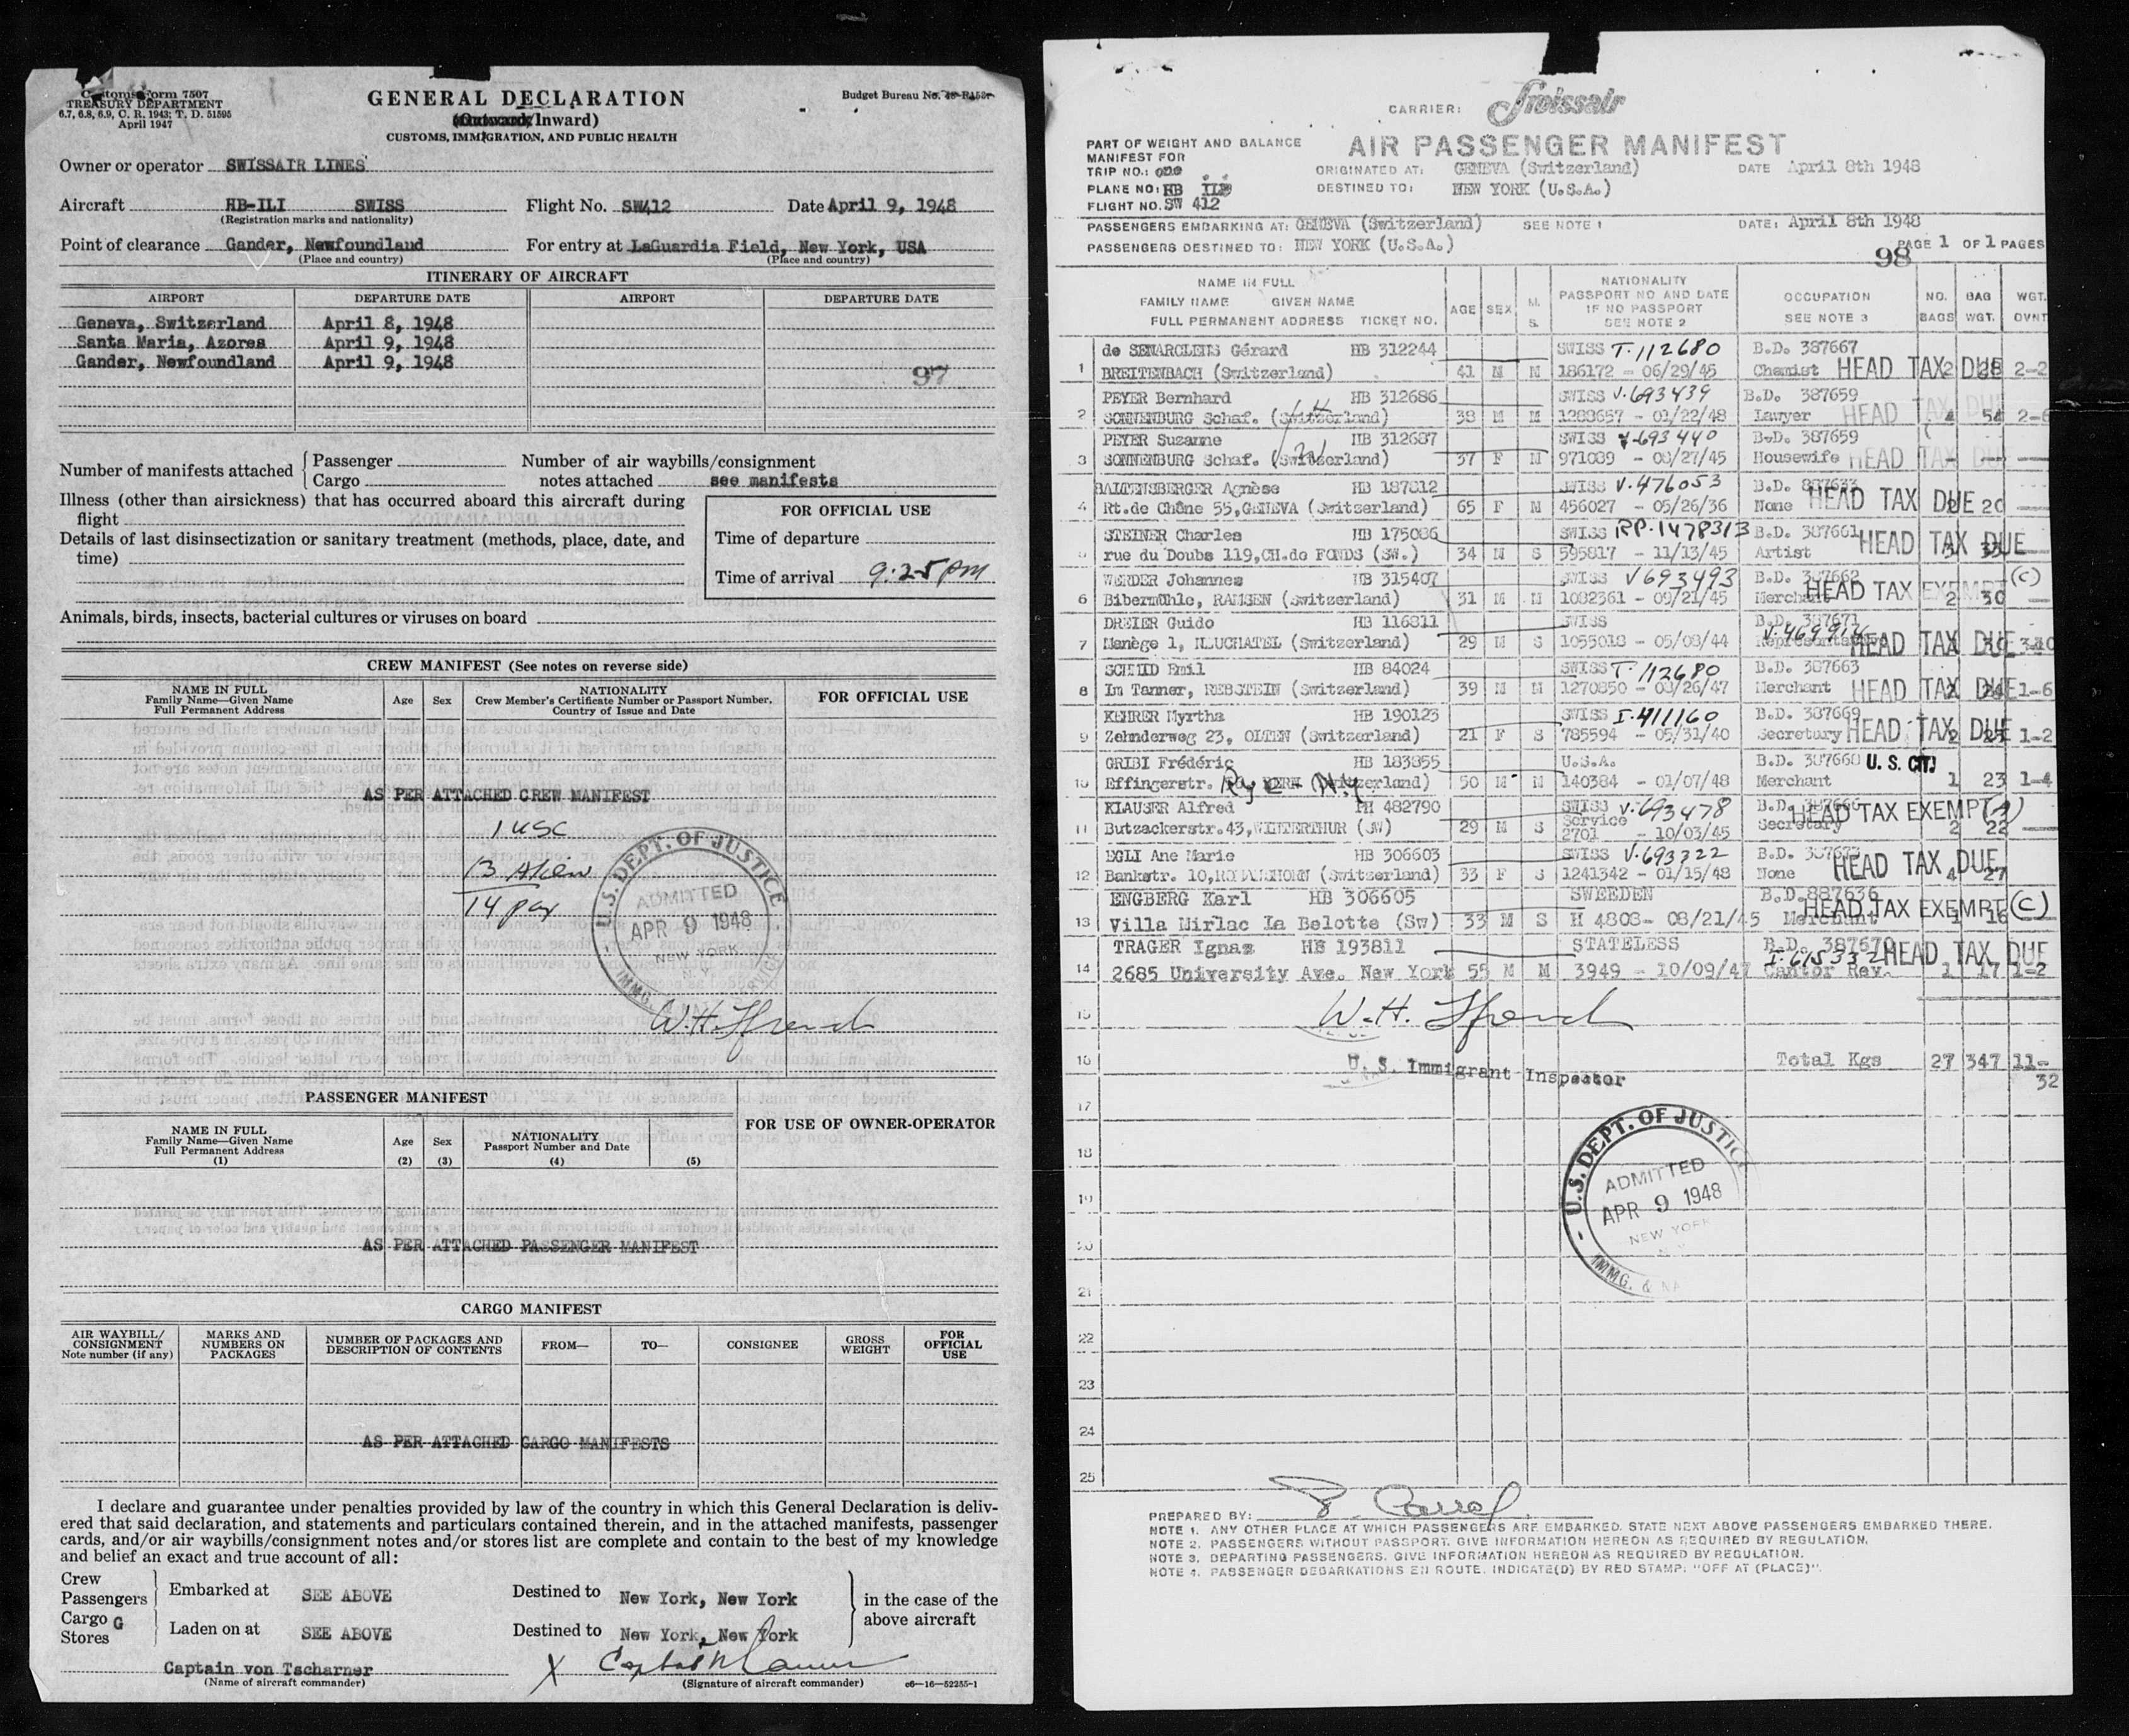 Customs Form 7507
TREASURY DEPARTMENT
6.7, 6.8, 6.9, C. R. 1943; T. D. 51595
April 1947
GENERAL DECLARATION
(Outward/Inward)
CUSTOMS, IMMIGRATION, AND PUBLIC HEALTH
Budget Bureau No.
Owner or operator SWISSAIR LINES
Aircraft HB-ILI SWISS Flight No. SW412 Date April 9, 1948
(Registration marks and nationality)
Point of clearance Gander, Newfoundland For entry at LaGuardia Field, New York, USA
(Place and country) (Place and country)
ITINERARY OF AIRCRAFT
AIRPORT DEPARTURE DATE AIRPORT DEPARTURE DATE
Geneva, Switzerland April 8, 1948
Santa Maria, Azores April 9, 1948
Gander, Newfoundland April 9, 1948
97
Number of manifests attached { Passenger
Cargo
Number of air waybills/consignment
notes attached see manifests
Illness (other than airsickness) that has occurred aboard this aircraft during
flight
Details of last disinsectization or sanitary treatment (methods, place, date, and
time)
FOR OFFICIAL USE
Time of departure
Time of arrival 9:25 pm
Animals, birds, insects, bacterial cultures or viruses on board
CREW MANIFEST (See notes on reverse side)
NAME IN FULL
Family Name—Given Name
Full Permanent Address
Age Sex
NATIONALITY
Crew Member's Certificate Number or Passport Number,
Country of Issue and Date
FOR OFFICIAL USE
AS PER ATTACHED CREW MANIFEST
1 USC
13 Alien
14 pax
U.S. DEPT. OF JUSTICE
ADMITTED
APR 9 1948
NEW YORK
N.Y.
IMMG. & NAT.
W.H.
PASSENGER MANIFEST
NAME IN FULL
Family Name—Given Name
Full Permanent Address
(1)
Age
(2)
Sex
(3)
NATIONALITY
Passport Number and Date
(4) (5)
FOR USE OF OWNER-OPERATOR
AS PER ATTACHED PASSENGER MANIFEST
CARGO MANIFEST
AIR WAYBILL/
CONSIGNMENT
Note number (if any)
MARKS AND
NUMBERS ON
PACKAGES
NUMBER OF PACKAGES AND
DESCRIPTION OF CONTENTS
FROM— TO— CONSIGNEE
GROSS
WEIGHT
FOR
OFFICIAL
USE
AS PER ATTACHED CARGO MANIFESTS
I declare and guarantee under penalties provided by law of the country in which this General Declaration is deliv-
ered that said declaration, and statements and particulars contained therein, and in the attached manifests, passenger
cards, and/or air waybills/consignment notes and/or stores list are complete and contain to the best of my knowledge
and belief an exact and true account of all:
Crew
Passengers } Embarked at SEE ABOVE Destined to New York, New York
Cargo G
Stores } Laden on at SEE ABOVE Destined to New York, New York
in the case of the
above aircraft
Captain von Tscharner X
(Name of aircraft commander) (Signature of aircraft commander) c6—16—52255-1
CARRIER: Swissair
AIR PASSENGER MANIFEST
PART OF WEIGHT AND BALANCE
MANIFEST FOR
TRIP NO.: one
PLANE NO: HB
FLIGHT NO. SW 412
ORIGINATED AT: GENEVA (Switzerland) DATE April 8th 1948
DESTINED TO: NEW YORK (U.S.A.)
PASSENGERS EMBARKING AT: GENEVA (Switzerland) SEE NOTE 1 DATE: April 8th 1948
PASSENGERS DESTINED TO: NEW YORK (U.S.A.) PAGE 1 OF 1 PAGES
98
NAME IN FULL
FAMILY NAME GIVEN NAME
FULL PERMANENT ADDRESS TICKET NO.
AGE SEX M. S.
NATIONALITY
PASSPORT NO AND DATE
IF NO PASSPORT
SEE NOTE 2
OCCUPATION
SEE NOTE 3
NO. BAGS
BAG WGT.
WGT. OVNT
de SENARCLENS Gérard HB 312244 SWISS T-112680 B.D. 387667
1 BREITENBACH (Switzerland) 41 M M 186172 - 06/29/45 Chemist HEAD TAX DUE 2 28 2-2
PEYER Bernhard HB 312686 SWISS V-693439 B.D. 387659
2 SONNENBURG Schaf. (Switzerland) 38 M M 1288657 - 01/22/48 Lawyer HEAD TAX DUE 4 54
PEYER Suzanne HB 312687 SWISS V-693440 B.D. 387659
3 SONNENBURG Schaf. (Switzerland) 37 F M 971089 - 08/27/45 Housewife HEAD TAX
BALTENSBERGER Agnèse HB 187812 SWISS V-476053 B.D.
4 Rt.de Chône 55, GENEVA (Switzerland) 65 F M 456027 - 05/26/36 None HEAD TAX DUE 20
STEINER Charles HB 175086 SWISS RP-1478313 B.D. 387661
5 rue du Doubs 119, CH.de FONDS (SW.) 34 M S 595817 - 11/13/45 Artist HEAD TAX DUE
WERDER Johannes HB 315407 SWISS V693493 B.D. 387662
6 Bibermühle, RAMSEN (Switzerland) 31 M M 1082361 - 09/21/45 Merchant HEAD TAX EXEMPT (C) 2 30
DREIER Guido HB 116811 SWISS B.D. 387671
7 Manège 1, NEUCHATEL (Switzerland) 29 M S 1055018 - 05/08/44 HEAD TAX DUE
SCHMID Emil HB 84024 SWISS T-112680 B.D. 387663
8 Im Tanner, REBSTEIN (Switzerland) 39 M M 1270850 - 08/26/47 Merchant HEAD TAX DUE 2 24 1-6
KEHRER Myrtha HB 190123 SWISS I-411160 B.D. 387669
9 Zehnderweg 23, OLTEN (Switzerland) 21 F S 785594 - 05/31/40 Secretary HEAD TAX DUE 2 1-2
GRIBI Frédéric HB 183855 U.S.A. B.D. 387660 U. S. CIT.
10 Effingerstr. (Switzerland) 50 M M 140384 - 01/07/48 Merchant 1 23 1-4
KLAUSER Alfred PH 482790 SWISS V-693478 B.D.
11 Butzackerstr.43, WINTERTHUR (SW) 29 M S Service 2701 - 10/03/45 Secretary HEAD TAX EXEMPT 2 22
EGLI Ane Marie HB 306603 SWISS V-693322 B.D.
12 Bankstr. 10, ROMANSHORN (Switzerland) 33 F S 1241342 - 01/15/48 None HEAD TAX DUE 4 27
ENGBERG Karl HB 306605 SWEDEN B.D. 887636
13 Villa Mirlac La Belotte (Sw) 33 M S H 4808- 08/21/45 Merchant HEAD TAX EXEMPT (C) 1 16
TRAGER Ignaz HB 193811 STATELESS B.D. 387670
14 2685 University Ave. New York 55 M M 3949 - 10/09/47 Cantor Rev. HEAD TAX DUE 1 17 1-2
15 W.H.
16 U. S. Immigrant Inspector Total Kgs 27 347 11-
32
17
18
U.S. DEPT. OF JUSTICE
ADMITTED
APR 9 1948
NEW YORK
IMMG. & NA
19
20
21
22
23
24
25
PREPARED BY:
NOTE 1. ANY OTHER PLACE AT WHICH PASSENGERS ARE EMBARKED, STATE NEXT ABOVE PASSENGERS EMBARKED THERE.
NOTE 2. PASSENGERS WITHOUT PASSPORT, GIVE INFORMATION HEREON AS REQUIRED BY REGULATION.
NOTE 3. DEPARTING PASSENGERS, GIVE INFORMATION HEREON AS REQUIRED BY REGULATION.
NOTE 4. PASSENGER DEBARKATIONS EN ROUTE, INDICATE(D) BY RED STAMP: "OFF AT (PLACE)".